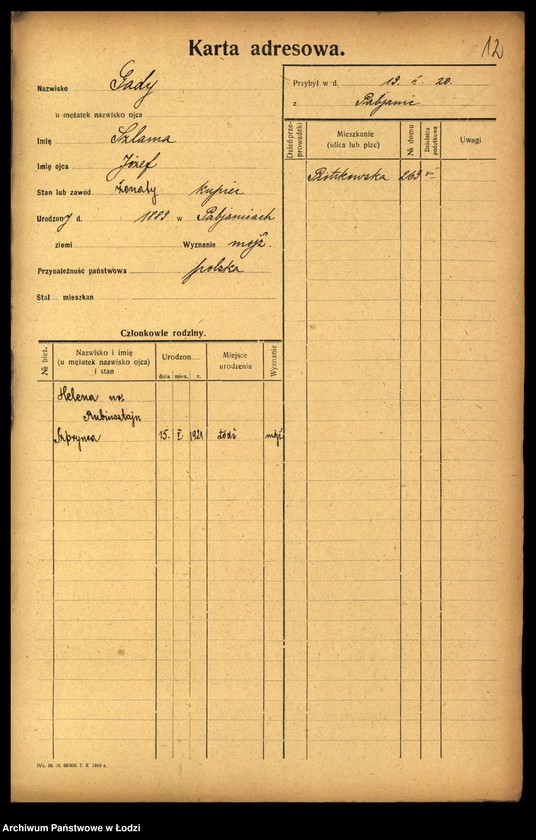 12
Karta adresowa.
Nazwisko Gady
u mężatek nazwisko ojca
Imię Szlama
Imię ojca Józef
Stan lub zawód żonaty kupiec
Urodzony d. 1889 w Pabjanicach
ziemi Wyznanie mojż.
Przynależność państwowa polska
Stał mieszkan
Przybył w d. 19. V. 20.
z Pabjanic
Dzień przeprowadzki Mieszkanie (ulica lub plac) № domu Dzielnica podatkowa Uwagi
Piotrkowska 269
Członkowie rodziny.
№ bież. Nazwisko i imię (u mężatek nazwisko ojca) i stan Urodzon dnia mies. r. Miejsce urodzenia Wyznanie
Helena ur.
Rubinsztajn
Szprynca 15. V 1921 Łódź mojż
Archiwum Państwowe w Łodzi